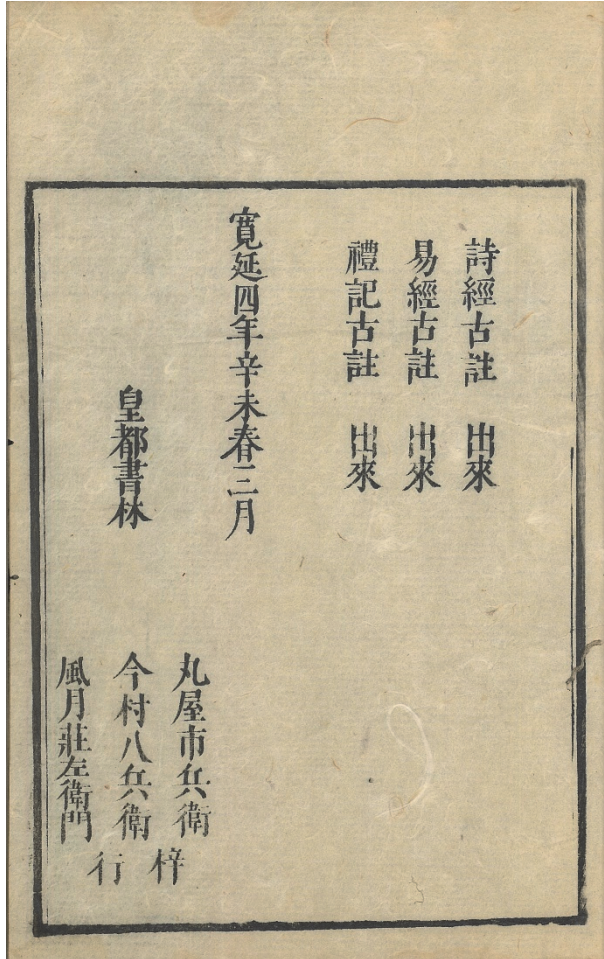 詩經古註　出來
易經古註　出來
禮記古註　出來
寛延四年辛未春三月
皇都書林
丸屋市兵衛
今村八兵衛
風月莊左衛門
梓行